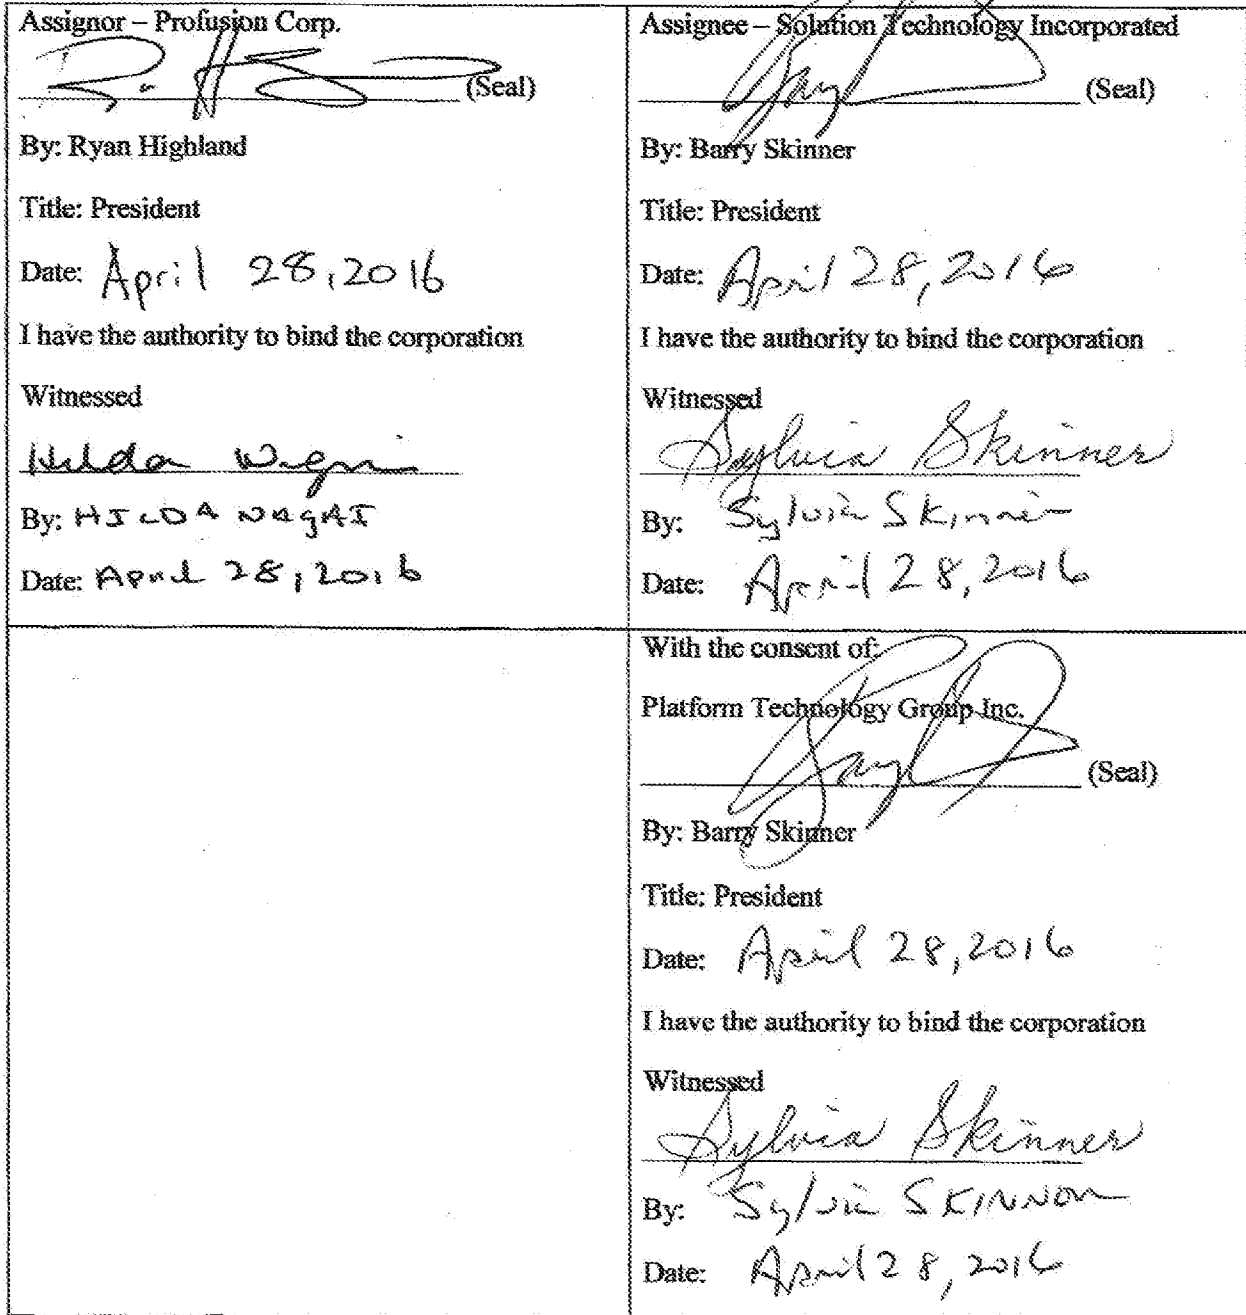 Assignor – Profusion Corp.
(Seal)
By: Ryan Highland
Title: President
Date: April 28, 2016
I have the authority to bind the corporation
Witnessed
Hilda
By: HILDA NAGAI
Date: April 28, 2016
Assignee – Solution Technology Incorporated
(Seal)
By: Barry Skinner
Title: President
Date: April 28, 2016
I have the authority to bind the corporation
Witnessed
Sylvia Skinner
By: Sylvia Skinner
Date: April 28, 2016
With the consent of:
Platform Technology Group Inc.
(Seal)
By: Barry Skinner
Title: President
Date: April 28, 2016
I have the authority to bind the corporation
Witnessed
Sylvia Skinner
By: Sylvia SKINNER
Date: April 28, 2016